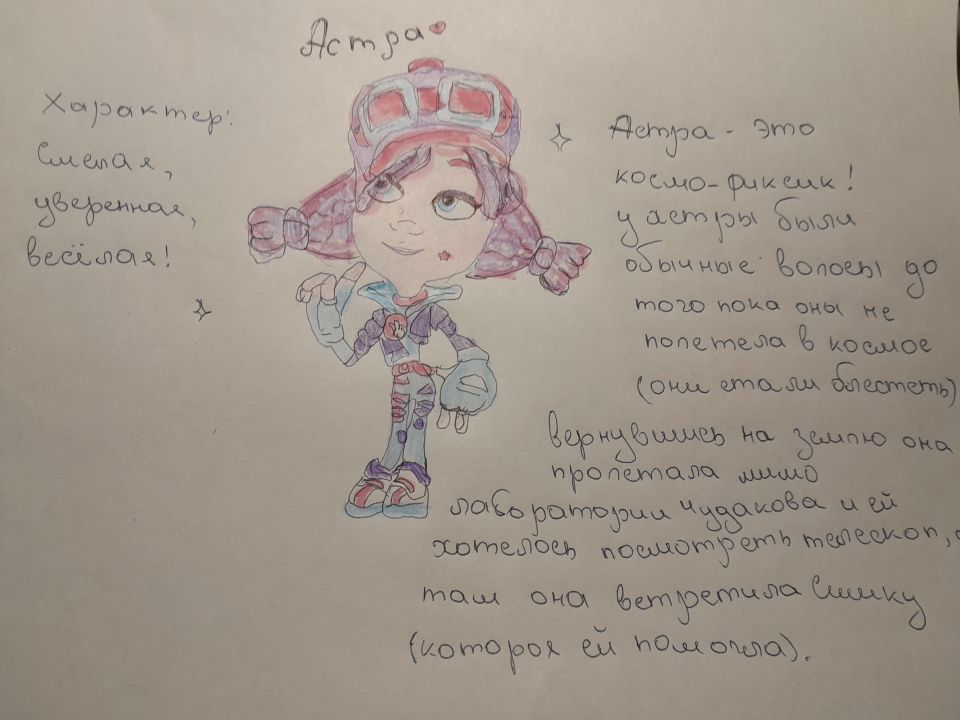 Астра
Характер:
Смелая,
уверенная,
весёлая!
Астра - это
космо-фиксик!
у Астры были
обычные волосы до
того пока оны не
полетела в космое
(они стали блестеть)
вернувшись на землю она
пролетала мимо
лаборатории Чудакова и ей
хотелось посмотреть телескоп, а
там она встретила Симку
(которая ей помогла).